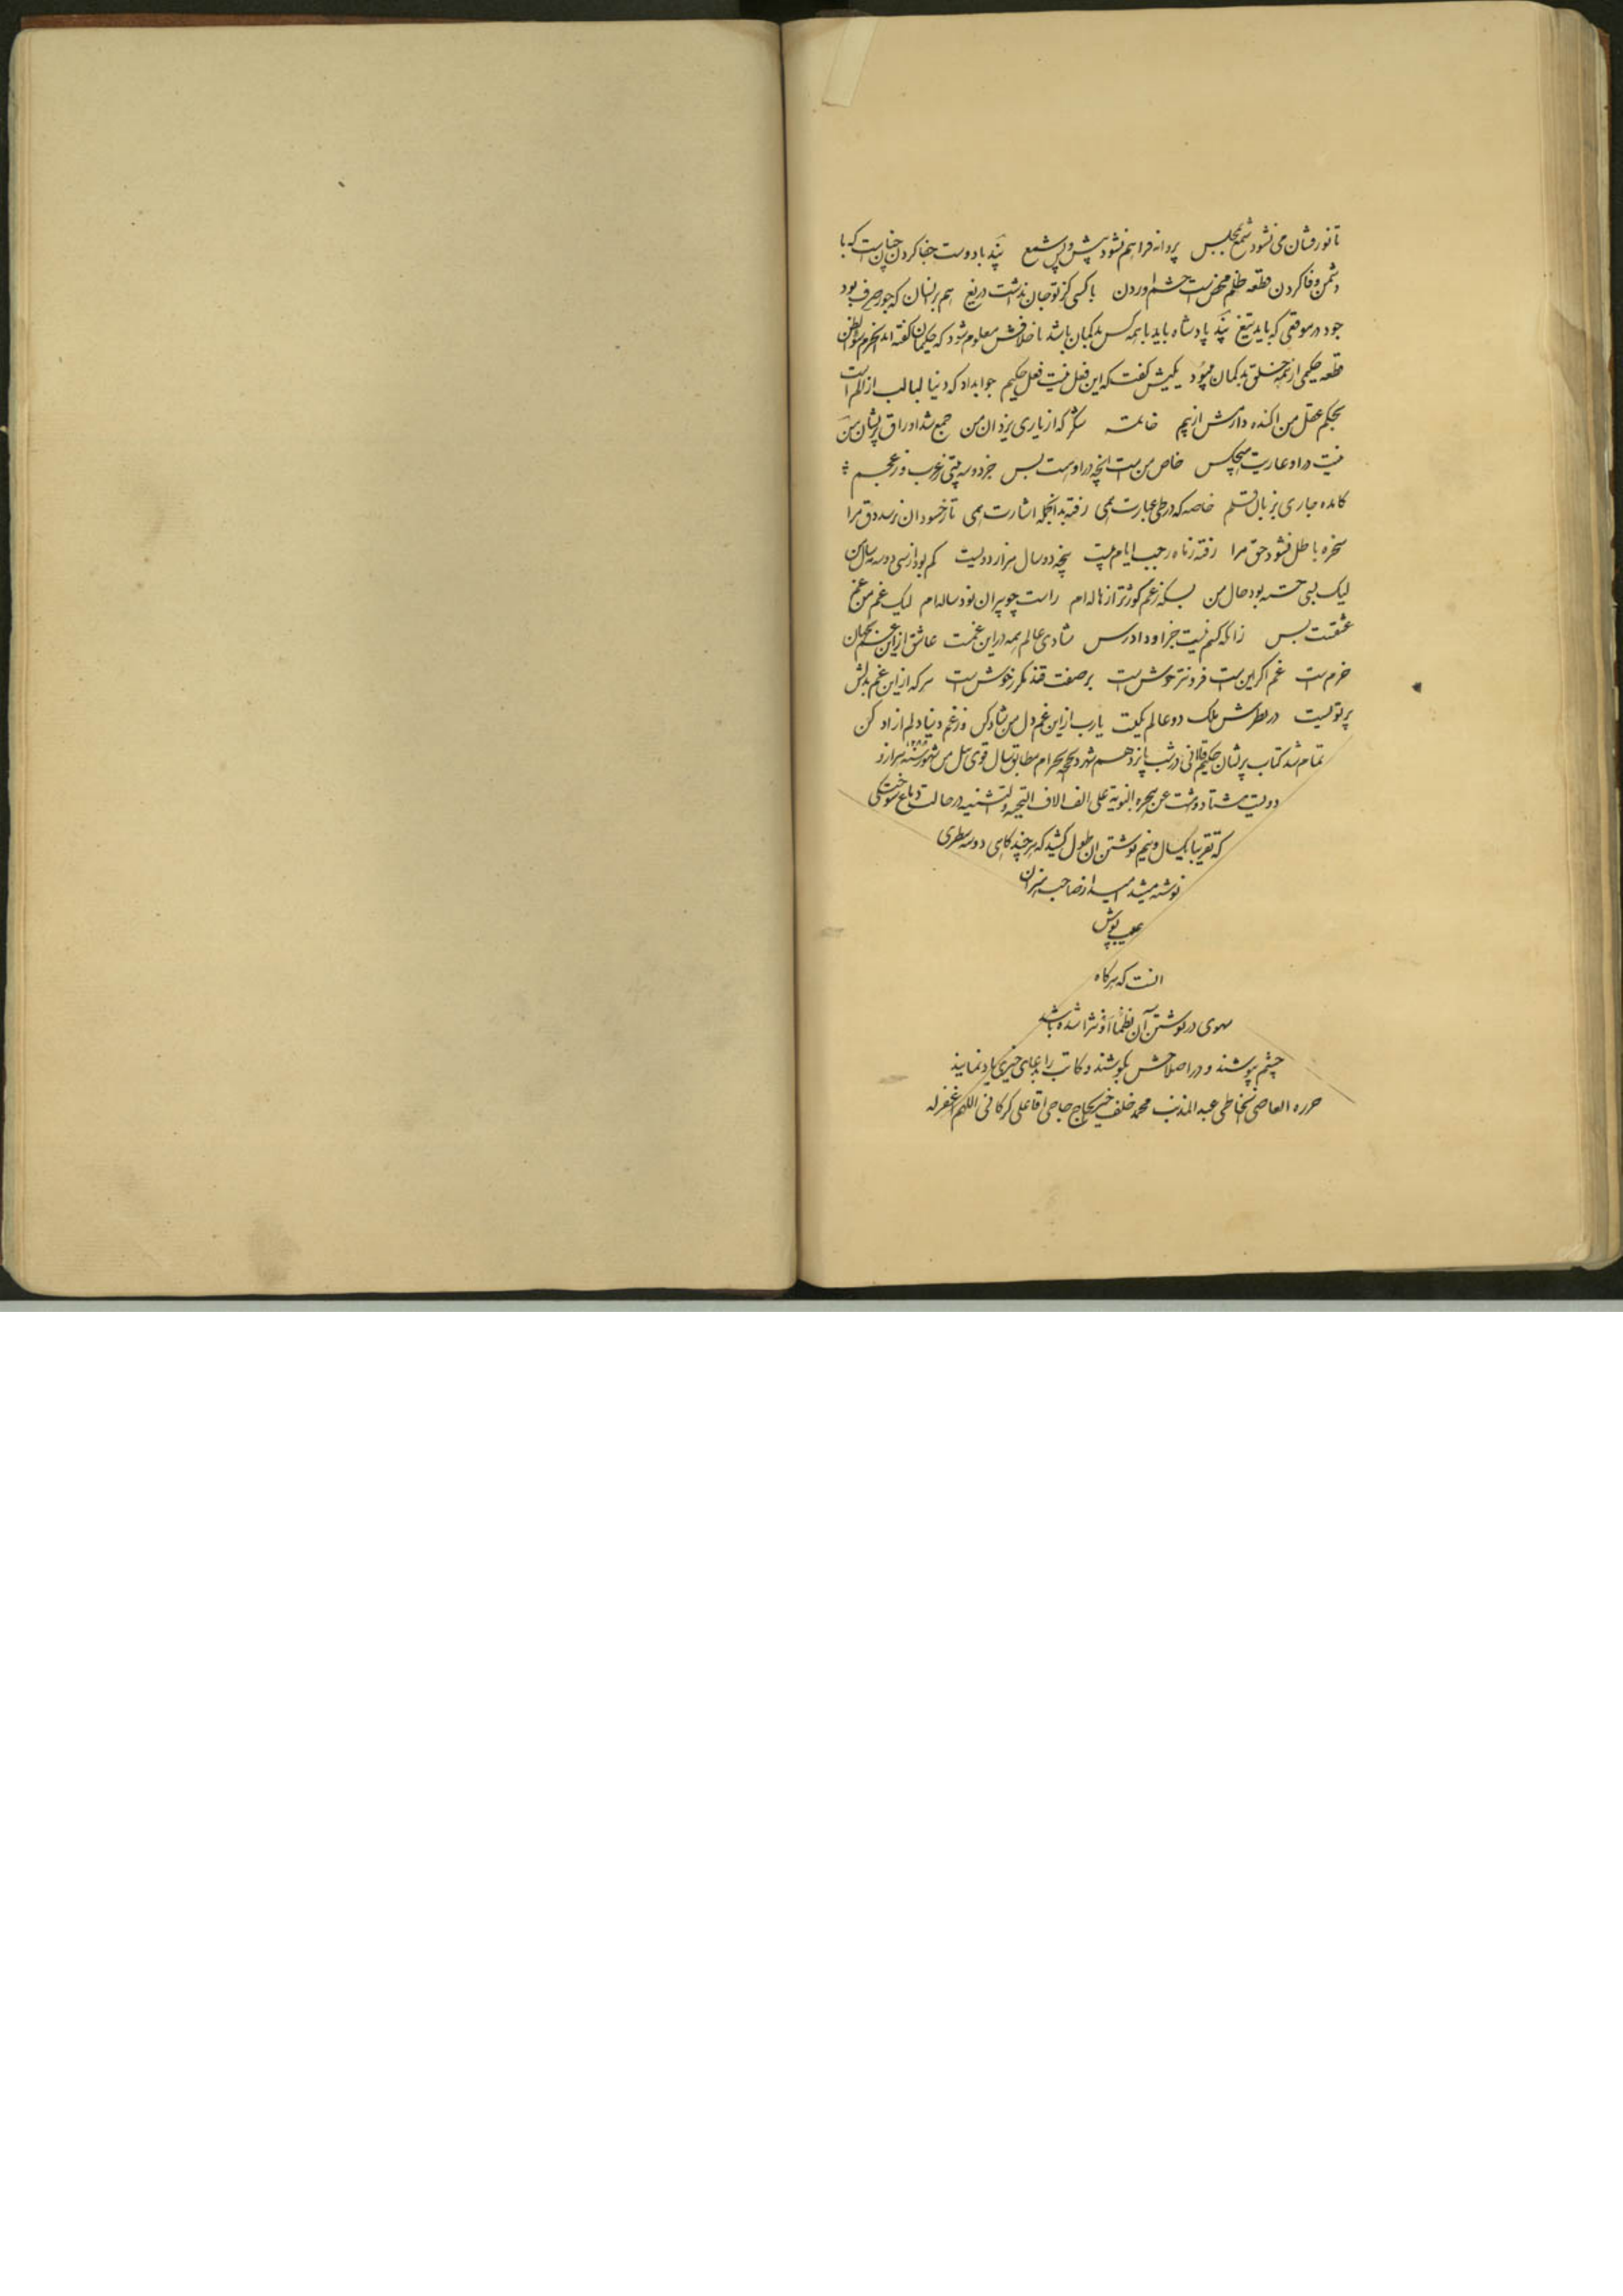 تا نورفشان می نشود شمع بمجلس پروانه فراهم نشود پیش و پس شمع پند با دوست جفا کردن چنانست که با
دشمن وفا کردن قطعه ظلم محض است خشم اوردن با کسی کز تو جان نداشت دریغ هم بر انسان که جور صرف بود
جود در موقعی که باید تیغ پند پادشاه باید با همه کس بدگمان باشد تا خلافش معلوم شود که حکیمان گفته اند الحزم سوء الظن
قطعه حکیمی از همه خلق بدگمان میبود یکیش گفت که این فعل نیست فعل حکیم جواب داد که دنیا لبالب از الم است
بحکم عقل من اکنده دارمش از بیم خاتمه شکر که از یاری یزدان من جمع شد اوراق پریشان من
نیست در او عاریت هیچکس خاص من است انچه در اوست بس جز دو سه بیتی ز عرب وز عجم
کامده جاری بزبان قلم خاصه که در طی عبارت همی رفته بدانجمله اشارت همی تا ز حسودان نرسد دق مرا
سخره باطل نشود حق مرا رفته ز ماه رجب ایام بیست پنجه و دو سال هزار و دویست کم بود از سی دو سه سال من
لیک بسی خسته بود حال من بسکه ز غم کوژتر از هاله ام راست چو پیران نود ساله ام لیک غم من غم
عشقست بس زانکه کسم نیست جز او دادرس شادی عالم همه در این غمست عاشق از این غم بجهان
خرم است غم اگر این است فزونتر خوش است بر صفت قند مکرر خوش است هر که از این غم بدلش
پرتویست در نظرش ملک دو عالم یکیست یارب از این غم دل من شاد کن وز غم دنیا دلم ازاد کن
تمام شد کتاب پریشان حکیم قاانی در شب پانزدهم شهر ذیحجه الحرام مطابق سال قوی ئیل من شهور سنه ۱۲۸۸ هزار و
دویست هشتاد و هشت عن هجره النبویة علی الف الاف التحیه و الثنیه در حالت دماغ سوختگی
که تقریبا یکسال و نیم نوشتن ان طول کشید که هر چند گاهی دو سه سطری
نوشته میشد امید از صاحب هنران
عیب پوش
انست که هرگاه
سهوی در نوشتن آن نظماً او نثرا شده باشد
چشم بپوشند و در اصلاحش بکوشند و کاتب را بدعای خیری یاد نمایند
حرره العاصی الخاطی عبد المذنب محمد خلف خیر الحاج حاجی اقا علی کرکانی اللهم اغفر له